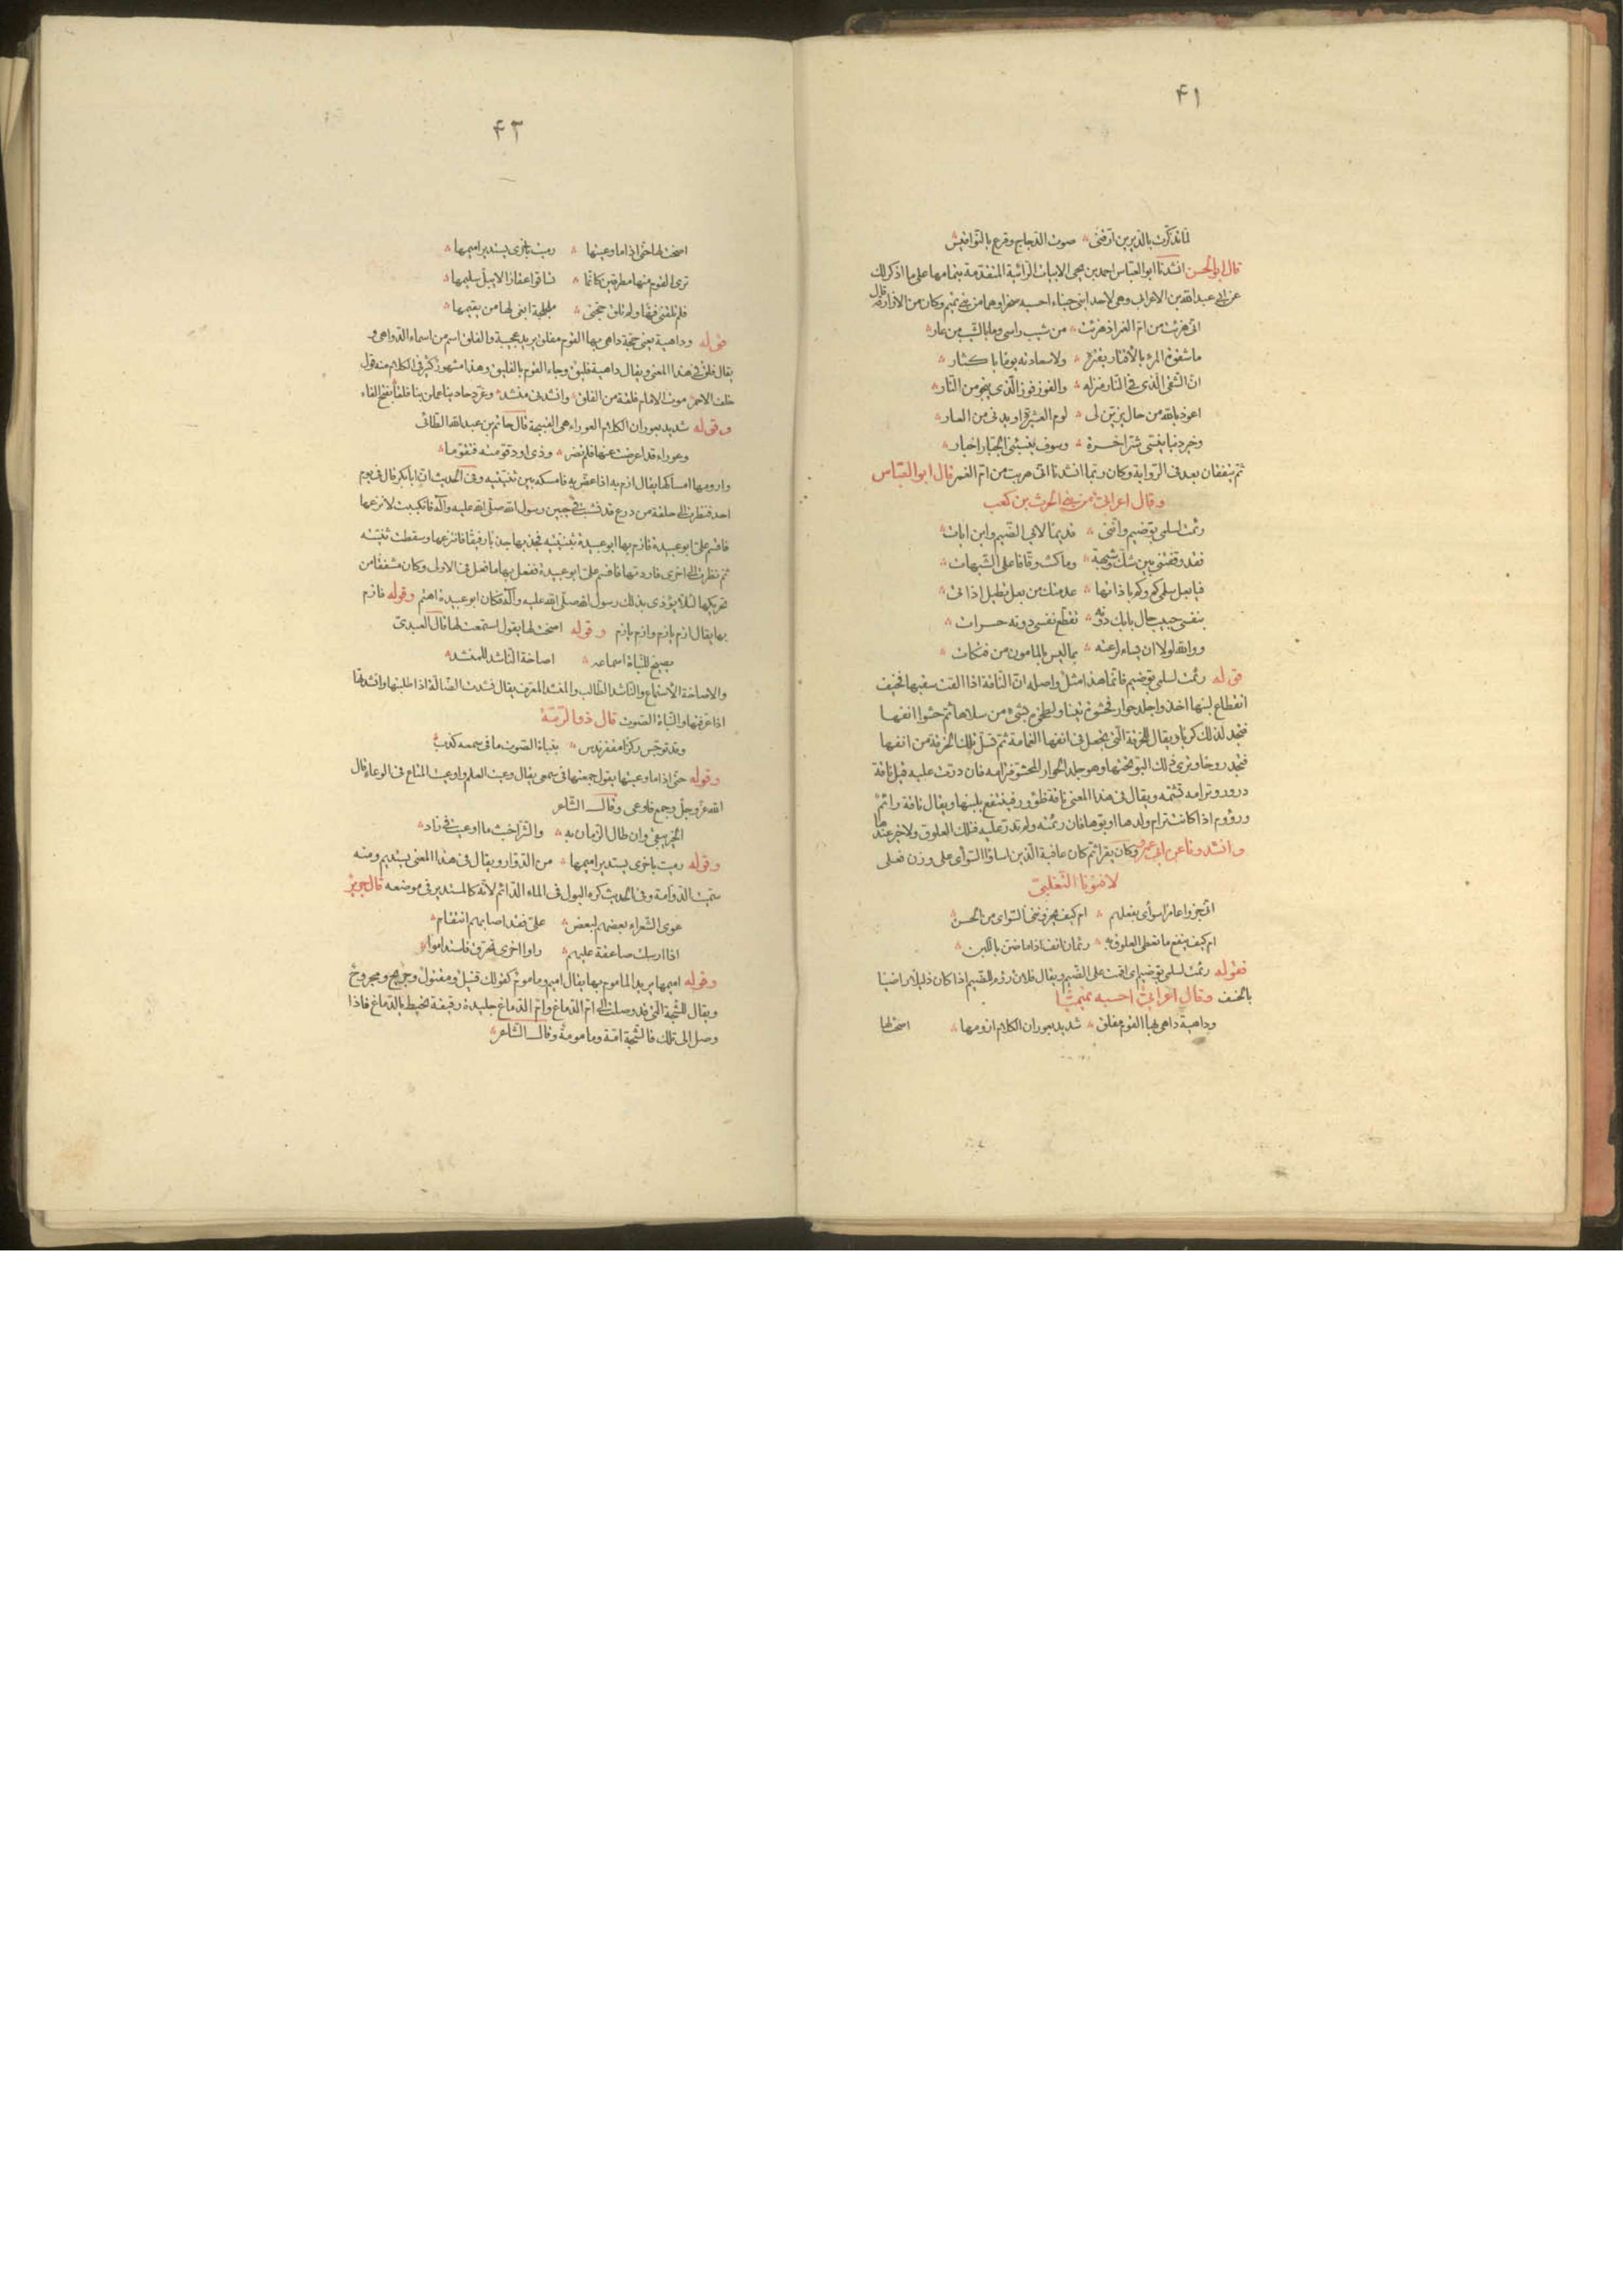 ۴۱
لما تذكرت بالديرين ارقني صوت الدجاج وقرع بالنواقيس
قال ابو الحسن انشدنا ابو العباس احمد بن يحيى الابيات الرائية المتقدمة بتمامها على ما اذكر لك
عن ابي عبد الله بن الاعرابي وهي لاحد ابني حبناء احسبه صخرا وهما من بني تميم وكان من الازارقة قال
اني هزئت من ام الغمر اذ هزئت من شيب راسي وما بالشيب من عار
ما شقوة المرء بالاقتار يقتره ولا سعادته يوما باكثار
ان الشقي الذي في النار منزله والفوز فوز الذي ينجو من النار
اعوذ بالله من حال يزين لي لوم العشيرة او يدني من العار
وخير دنيا ينسي شر اخرة وسوف ينبئني الجبار اخباري
ثم يتفقان بعد في الرواية وكان ربما انشدنا اني هزئت من ام الغمر قال ابو العباس
وقال اعرابي من بني الحرث بن كعب
رئمت لسلمى بو ضيم وانني قديما لابي الضيم وابن ابات
فقد وقفتني بين شك وشبهة وما كنت وقافا على الشبهات
فيا بعل سلمى كم وكم باذاتها عدمتك من بعل تطيل اذاتي
بنفسي حبيب حال بابك دونه تقطع نفسي دونه حسرات
ووالله لولا ان تساء لرعته بما ليس بالمامون من فتكات
قوله رئمت لسلمى بو ضيم فانما هذا مثل واصله ان الناقة اذا القت سقبها فخيف
انقطاع لبنها اخذوا جلد حوار فحشوه تبنا ولطخوه بشيء من سلاها ثم حشوا انفها
فتجد لذلك كربا ويقال للخرقة التي تجعل في انفها الغمامة ثم تسل تلك الخرقة من انفها
فتجد روحا وترى ذلك البو تحتها وهو جلد الحوار المحشو فترامه فان درت عليه قيل ناقة
درور وترامه تشمه ويقال في هذا المعنى ناقة ظؤور فينتفع بلبنها ويقال ناقة رائم
ورؤوم اذا كانت ترام ولدها او بوها فان رئمته ولم تدر عليه فتلك العلوق ولا خير عندها
وانشدونا عن ابي عمرو وكان يقرا ثم كان عاقبة الذين اساؤا السوأى على وزن فعلى
لافنون التغلبي
اني جزوا عامرا سوأى بفعلهم ام كيف يجزونني السوأى من الحسن
ام كيف ينفع ما تعطي العلوق به رئمان انف اذا ما ضن باللبن
فقوله رئمت لسلمى بو ضيم اي اقمت على الضيم ويقال فلان رؤوم للضيم اذا كان ذليلا راضيا
بالخسف وقال اعرابي احسبه تميميا
وداهية داهى بها القوم مفلق شديد بعوران الكلام ازومها
اصخت لها
۴۲
اصخت لها حتى اذا ما وعيتها رميت باخرى يستدير اميمها
ترى القوم منها مطرقين كانما تساقوا عقارا لا يبل سليمها
فلم تلفني فها ولم تلق حجتي ملجلجة ابغي لها من يقيمها
قوله وداهية يعني حجة داهى بها القوم مفلق يريد عجيبة والفلق اسم من اسماء الدواهي و
يقال فلق في هذا المعنى ويقال داهية فليق وجاء القوم بالفليق وهذا مشهور كثير في الكلام منه قول
خلف الاحمر موت الامام فلقة من الفلق وانشدني منشد وعرد حادينا عملن بنا فلقا بفتح الفاء
وقوله شديد بعوران الكلام العوراء هي القبيحة قال حاتم بن عبد الله الطائي
وعوراء قد اعرضت عنها فلم تضر وذي اود قومته فتقوما
وازومها امساكها يقال ازم به اذا عض به فامسكه بين ثنيتيه وفي الحديث ان ابا بكر قال في يوم
احد فنظرت الى حلقة من درع قد نشبت في جبين رسول الله صلى الله عليه وآله فانكببت لانزعها
فاقسم علي ابو عبيدة فازم بها ابو عبيدة بثنيتيه فجذبها جذبا رفيقا فانتزعها وسقطت ثنيته
ثم نظرت الى اخرى فاردتها فاقسم علي ابو عبيدة ففعل بها ما فعل في الاولى وكان مشفقا من
تحريكها لئلا يؤذي بذلك رسول الله صلى الله عليه وآله فكان ابو عبيدة اهتم وقوله فازم
بها يقال ازم يازم وازم يازم وقوله اصخت لها يقول استمعت لها قال العبدي
يصيخ للنباة اسماعه اصاخة الناشد للمنشد
والاصاخة الاستماع والناشد الطالب والمنشد المعرف يقال نشدت الضالة اذا طلبتها وانشدتها
اذا عرفتها والنباة الصوت قال ذو الرمة
وقد توجس ركزا مقفر ندس بنباة الصوت ما في سمعه كذب
وقوله حتى اذا ما وعيتها يقول جمعتها في سمعي يقال وعيت العلم واوعيت المتاع في الوعاء قال
الله عز وجل وجمع فاوعى وقال الشاعر
الخير يبقى وان طال الزمان به والشر اخبث ما اوعيت في زاد
وقوله رميت باخرى يستدير اميمها من الدوار ويقال في هذا المعنى يستديم ومنه
سميت الدوامة وفي الحديث كره البول في الماء الدائم لانه كالمستدير في موضعه قال جرير
عوى الشعراء بعضهم لبعض علي فقد اصابهم انتقام
اذا ارسلت صاعقة عليهم راوا اخرى تحرق فاستداموا
وقوله اميمها يريد المأموم بها يقال اميم ومأموم كقولك قتيل ومقتول وجريح ومجروح
ويقال للشجة التي قد وصلت الى ام الدماغ وام الدماغ جليدة رقيقة تحيط بالدماغ فاذا
وصل الى تلك فالشجة امة ومامومة وقال الشاعر